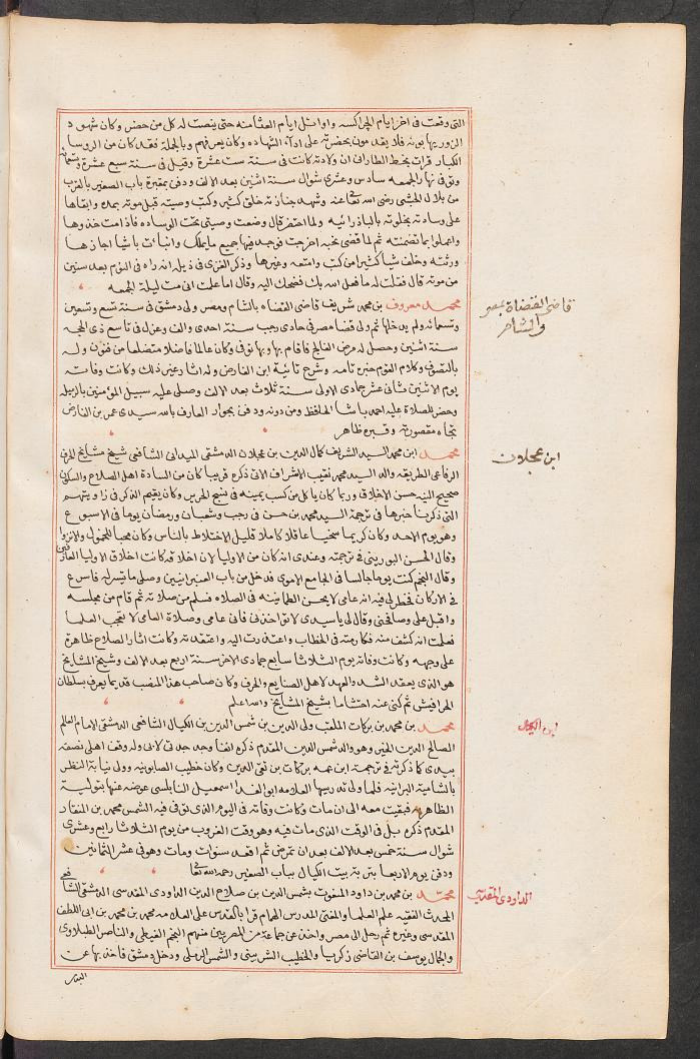 التى وقعت فى اخر ايام الجراكسه واوائل ايام العثامنه حتى ينصت له كل من حضر وكان شهود
الزور يهابونه فلا يقدمون بحضرته على ادآء الشهاده وكان يعرفهم وبالجملة فقد كان من الروسا
الكبار قرات بخط الطارانى ان ولادته كانت فى سنة ست عشرة وقيل فى سنة سبع عشرة وتسعمائة
وتوفى نهار الجمعه سادس وعشرى شوال سنة اثنين بعد الالف ودفن بمقبرة باب الصغير بالقرب
من بلال الحبشى رضى الله تعالى عنه وشهد جنازته خلق كثير وكتب وصيته قبل موته بمده وابقاها
على وسادته بخلوته بالباذرائيه ولما احتضر قال وضعت وصيتى تحت الوساده فاذا مت خذوها
واعملوا بما تضمنته ثم لما قضى نحبه اخرجت فوجد فيها جميع ما يملك واشيآت باشيا اجازها
ورثته وخلف شيا كثيرا من كتب وامتعه وغيرها وذكر الغزى فى ذيله انه راه فى النوم بعد سنين
من موته قال فقلت له ما فعل الله بك فضحك اليه وقال اما علمت انى مت ليلة الجمعه
محمد معروف بن محمد شريف قاضى القضاه بالشام ومصر ولى دمشق فى سنة تسع وتسعين
وتسعمائه ولم يدخلها ثم ولى قضا مصر فى حادى رجب سنة احدى والف وعزل فى تاسع ذى الحجه
سنة اثنين وحصل له مرض الفالج فاقام بها وبها توفى وكان عالما فاضلا متضلعا من فنون وله
بالتصوف وكلام القوم خبرة تامه وشرح تائية ابن الفارض وله اثار غير ذلك وكانت وفاته
يوم الاثنين ثانى عشر جمادى الاولى سنة ثلاث بعد الالف وصلى عليه بسبيل المؤمنين بالرميله
وحضر للصلاة عليه احمد باشا الحافظ ومن دونه ودفن بجوار العارف بالله سيدى عمر بن الفارض
تجاه مقصورته وقبره ظاهر
محمد ابن محمد السيد الشريف كمال الدين بن عجلان الدمشقى الميدانى الشافعى شيخ مشايخ الحرف
الرفاعى الطريقه والد السيد محمد نقيب الاشراف الاتى ذكره قريبا كان من السادة اهل الصلاح والسكون
صحيح النيه حسن الاخلاق وربما كان ياكل من كسب يمينه فى نسج الحرير وكان يقيم الذكر فى زاويتهم
التى ذكرنا خبرها فى ترجمة السيد محمد بن حسن فى رجب وشعبان ورمضان يوما فى الاسبوع
وهو يوم الاحد وكان كريما سخيا عاقلا كاملا قليل الاختلاط بالناس وكان محبا للخمول والانزوا
وقال الحسن البورينى فى ترجمته وعندى انه كان من الاوليا لان اخلاقه كانت اخلاق الاوليا العارفين
وقال النجم كنت يوما جالسا فى الجامع الاموى فدخل من باب العنبرانيين وصلى ما تيسر له فاسرع
فى الاركان فخطر لى فيه انه عامى لا يحسن الطمانينه فى الصلاه فسلم من صلاته ثم قام من مجلسه
واقبل على وصافحنى وقال لى يا سيدى لا تؤاخذنى فانى عامى وصلاة العامى لا تعجب العلما
فعلمت انه كشف منه فكارمته فى الخطاب واعتذرت اليه واعتقدته وكانت اثار الصلاح ظاهرة
على وجهه وكانت وفاته يوم الثلاثا سابع جمادى الاخر سنة اربع بعد الالف وشيخ المشايخ
هو الذى يعقد الشد والعهد لاهل الصنايع والحرف وكان صاحب هذا المنصب قديما يعرف بسلطان
الحرافيش ثم كنى عنه احتشاما بشيخ المشايخ والله اعلم
محمد بن محمد بن بركات الملقب ولى الدين بن شمس الدين بن الكيال الشافعى الدمشقى الامام العالم
الصالح الدين الخير وهو والد شمس الدين المقدم ذكره انفا وجد جدتى لابى وله وقف اهلى نصفه
بيدى كما ذكرته فى ترجمة ابن عمه بركات بن تقى الدين وكان خطيب الصابونيه وولى نيابة النظر
بالشامية البرانيه فلما ولى تدريسها العلامه ابو الفدا اسمعيل النابلسى عوضه عنها بتولية
الظاهريه فبقيت معه الى ان مات وكانت وفاته فى اليوم الذى توفى فيه الشمس محمد بن المنقار
المقدم ذكره بل فى الوقت الذى مات فيه وهو وقت الغروب من يوم الثلاثا رابع وعشرى
شوال سنة خمس بعد الالف بعد ان تمرض ثم اقعد سنوات ومات وهو فى عشر الثمانين
ودفن يوم الاربعا بتربة بيت الكيال بباب الصغير رحمه الله تعالى
محمد بن محمد بن داود المنعوت بشمس الدين بن صلاح الدين الداودى المقدسى الدمشقى الشافعى
المحدث الفقيه علم العلما والمفتى المدرس الهمام قرا بالقدس على العلامه محمد بن محمد بن ابى اللطف
المقدسى وغيره ثم رحل الى مصر واخذ عن جماعة من المصريين منهم النجم الغيطى والناصر الطبلاوى
والجمال يوسف بن القاضى زكريا والخطيب الشربينى والشمس الرملى ودخل دمشق فاخذ بها عن
قاضى القضاة بمصر
والشام
ابن عجلان
ابن الكيال
الداودى المقدسى